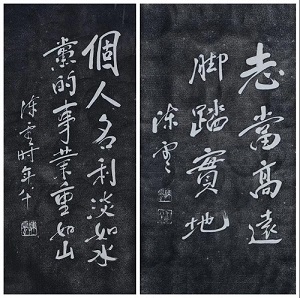 個人名利淡如水
黨的事業重如山
陳雲時年八十
志當高遠
脚踏實地
陳雲